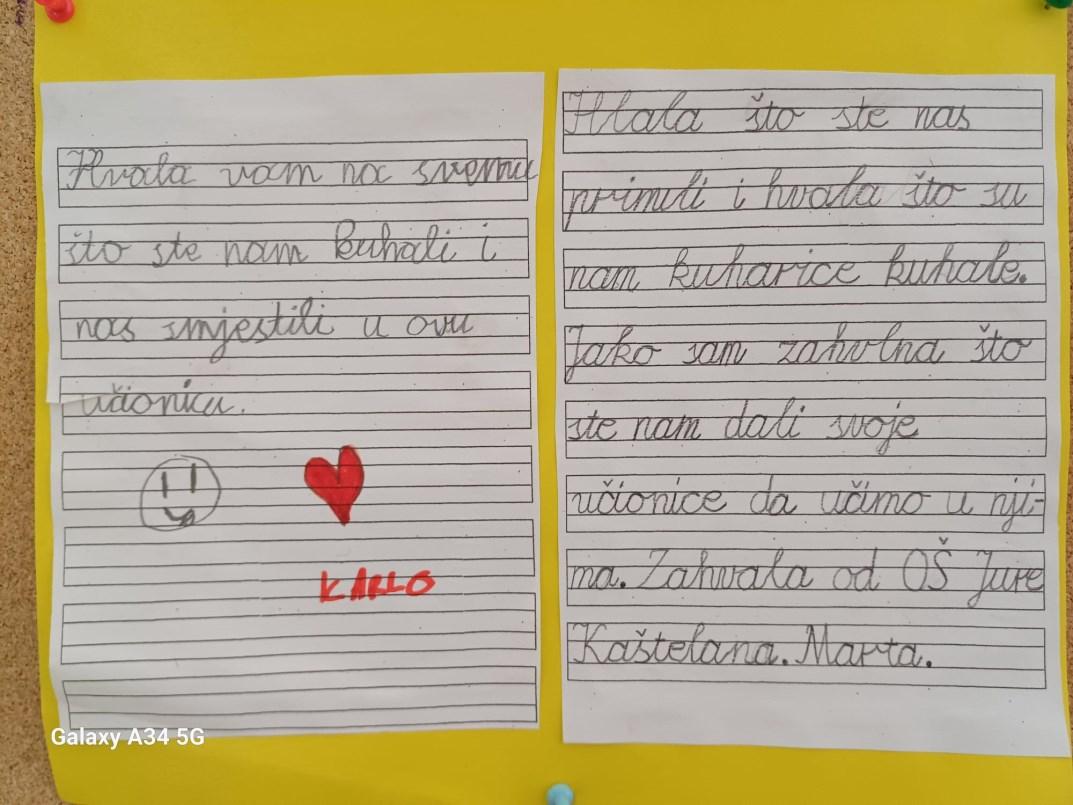 Hvala vam na svemu
što ste nam kuhali i
nas smjestili u ovu
učionicu.
KARLO
Hlala što ste nas
primili i hvala što su
nam kuharice kuhale.
Jako sam zahvlna što
ste nam dali svoje
učionice da učimo u nji-
ma. Zahvala od OŠ Jure
Kaštelana. Marta.
Galaxy A34 5G